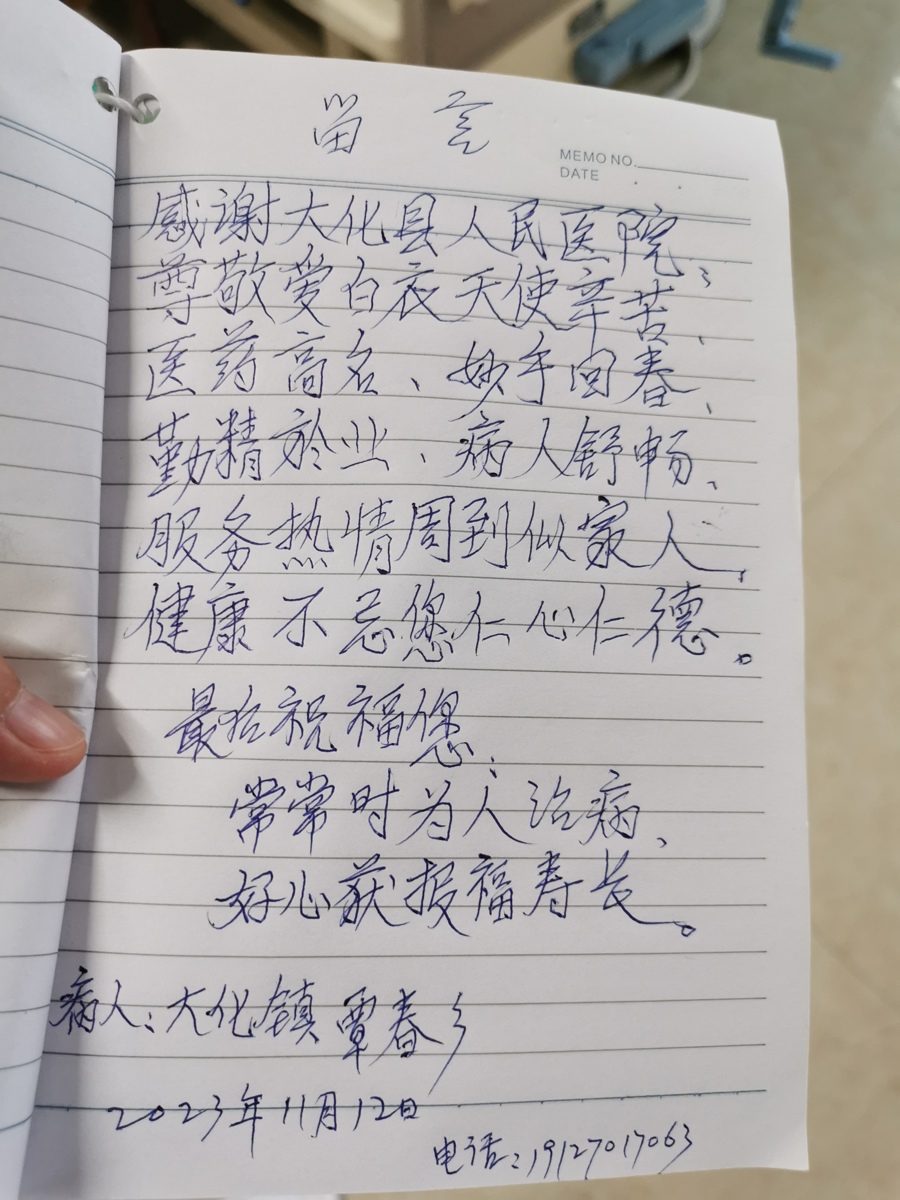 留言
MEMO NO.
DATE
感谢大化县人民医院、
尊敬爱白衣天使辛苦、
医药高名、妙手回春、
勤精於业、病人舒畅、
服务热情周到似家人、
健康不忌您仁心仁德。
最后祝福您、
常常时为人治病、
好心获报福寿长。
病人:大化镇覃春乡
2023年11月12日
电话:19127017063